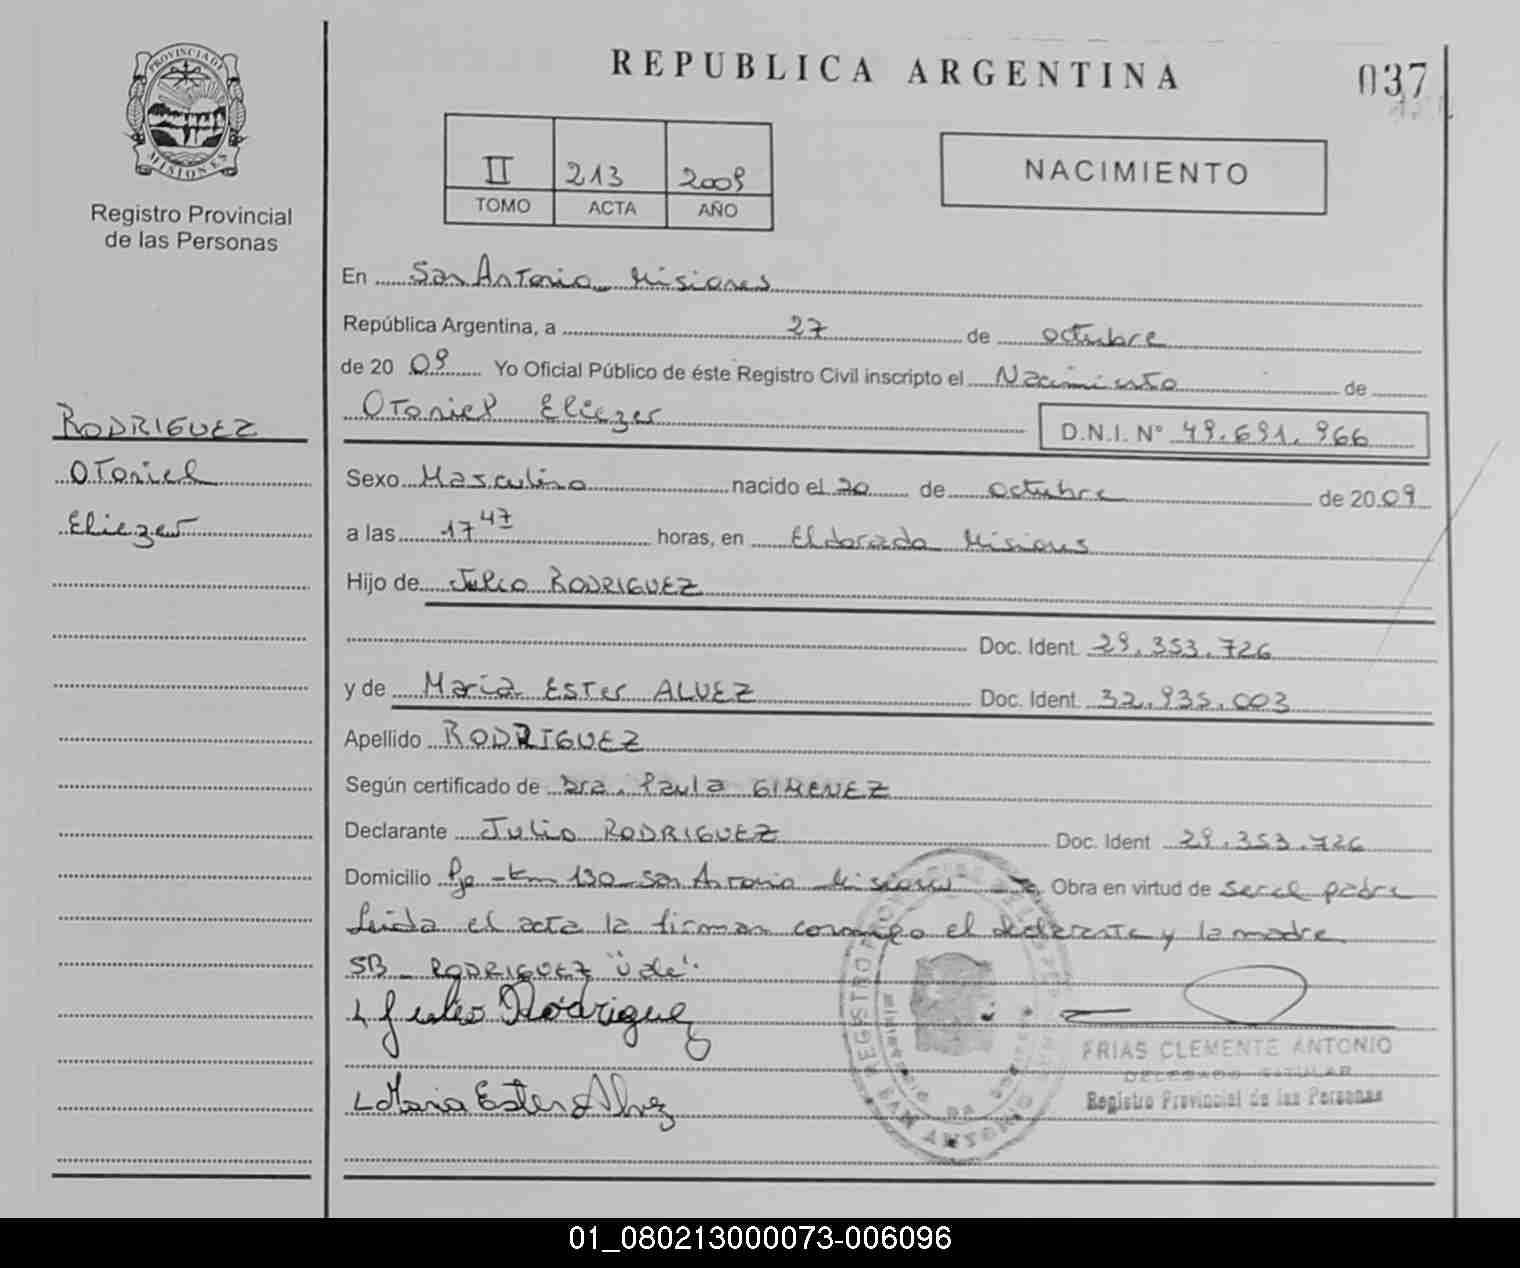 PROVINCIA DE
MISIONES
Registro Provincial
de las Personas
REPUBLICA ARGENTINA
037
II 213 2009
TOMO ACTA AÑO
NACIMIENTO
En San Antonio Misiones
República Argentina, a 27 de octubre
de 20 09 Yo Oficial Público de éste Registro Civil inscripto el Nacimiento de
Otoniel Eliezer
D.N.I. Nº 49.691.966
RODRIGUEZ
Otoniel
Eliezer
Sexo Masculino nacido el 20 de octubre de 20 09
a las 17 47 horas, en Eldorado Misiones
Hijo de Julio RODRIGUEZ
Doc. Ident. 29.353.726
y de Maria Ester ALVEZ Doc. Ident. 32.935.003
Apellido RODRIGUEZ
Según certificado de Dra. Paula GIMENEZ
Declarante Julio RODRIGUEZ Doc. Ident 29.353.726
Domicilio Pje - Km 130 - San Antonio Misiones Obra en virtud de ser el padre
Leida el acta la firman conmigo el declarante y la madre
SB - RODRIGUEZ "U de".
Julio Rodriguez
Maria Ester Alvez
REGISTRO PROVINCIAL DE LAS PERSONAS
SAN ANTONIO
FRIAS CLEMENTE ANTONIO
DELEGADO TITULAR
Registro Provincial de las Personas
01_080213000073-006096